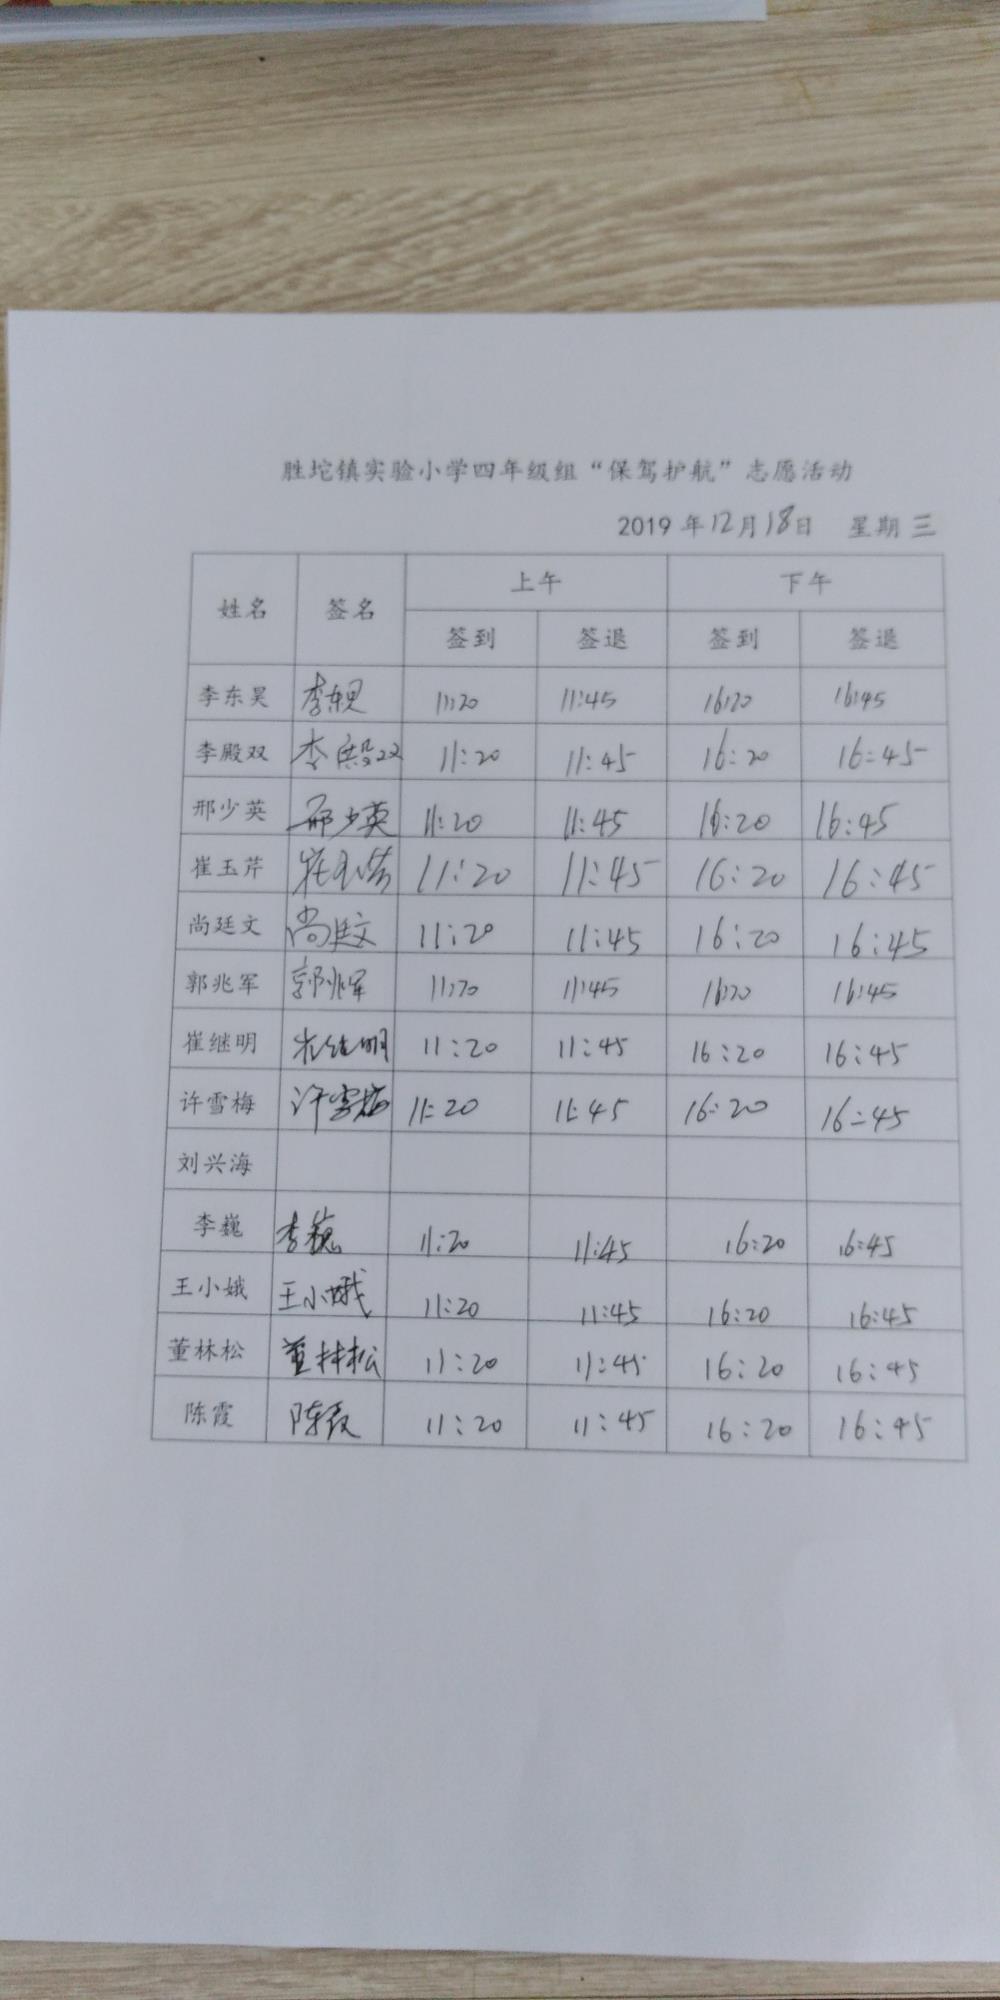 胜坨镇实验小学四年级组“保驾护航”志愿活动
2019年12月18日 星期三
姓名 签名 上午 下午
签到 签退 签到 签退
李东昊 李东昊 11:20 11:45 16:20 16:45
李殿双 李殿双 11:20 11:45 16:20 16:45
邢少英 邢少英 11:20 11:45 16:20 16:45
崔玉芹 崔玉芹 11:20 11:45 16:20 16:45
尚廷文 尚廷文 11:20 11:45 16:20 16:45
郭兆军 郭兆军 11:20 11:45 16:20 16:45
崔继明 崔继明 11:20 11:45 16:20 16:45
许雪梅 许雪梅 11:20 11:45 16:20 16:45
刘兴海
李巍 李巍 11:20 11:45 16:20 16:45
王小娥 王小娥 11:20 11:45 16:20 16:45
董林松 董林松 11:20 11:45 16:20 16:45
陈霞 陈霞 11:20 11:45 16:20 16:45